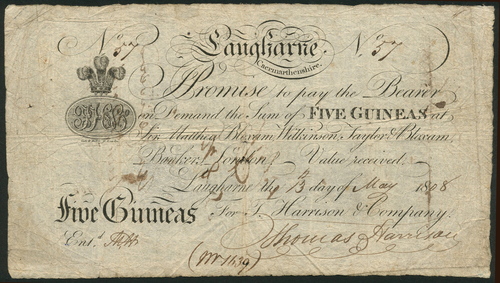 No. 57 Laugharne. No. 57
Caermarthenshire.
I Promise to pay the Bearer
on Demand the Sum of FIVE GUINEAS at
Sir Matthew Bloxam, Wilkinson, Taylor & Bloxam
Bankers London Value received.
Laugharne the 13 day of May 1808
Five Guineas For T. Harrison & Company.
Entd.
Thomas Harrison